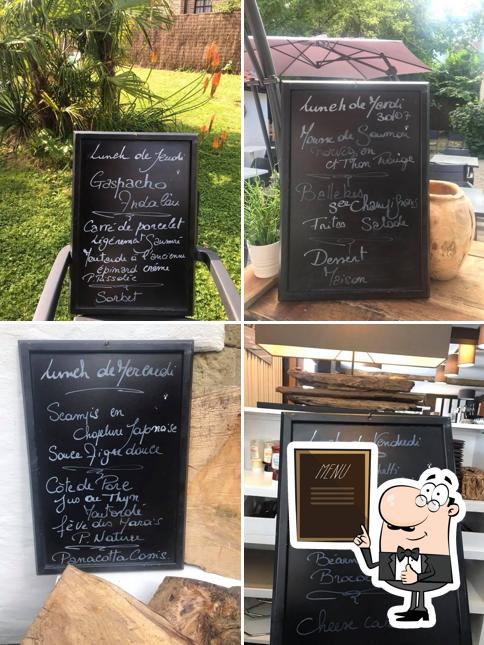 Lunch de Jeudi
Gaspacho
Andalou
Carré de porcelet
Légèrement Saumuré
Moutarde à l'ancienne
épinard crème
P. rissolée
Sorbet
Lunch de Mardi
30/07
Mousse de Saumon
Norvégien
et Thon Rouge
Ballekes
sce Champignons
Frites Salade
Dessert
Maison
Lunch de Mercredi
Scampis en
Chapelure Japonaise
Sauce Aigre douce
Côte de Porc
Jus au Thym
Moutarde
fève des Marais
P. Nature
Panacotta Coros
Lunch de Vendredi
MENU
Béarn
Broco
Cheese ca